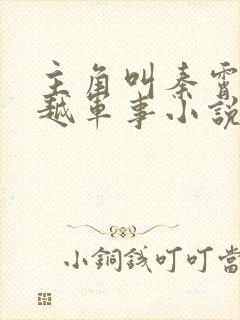 主角叫秦霄
越軍事小說
小銅錢叮叮當